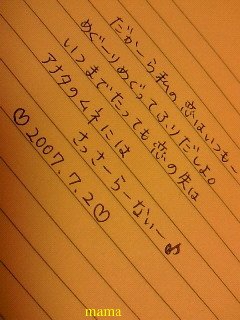 だかーら私の恋はいつも〜
めぐーりめぐってふりだしよ。
いつまでたっても恋の矢は
アナタのムネには
さっさーらーないー♪
♡2007.7.2♡
mama